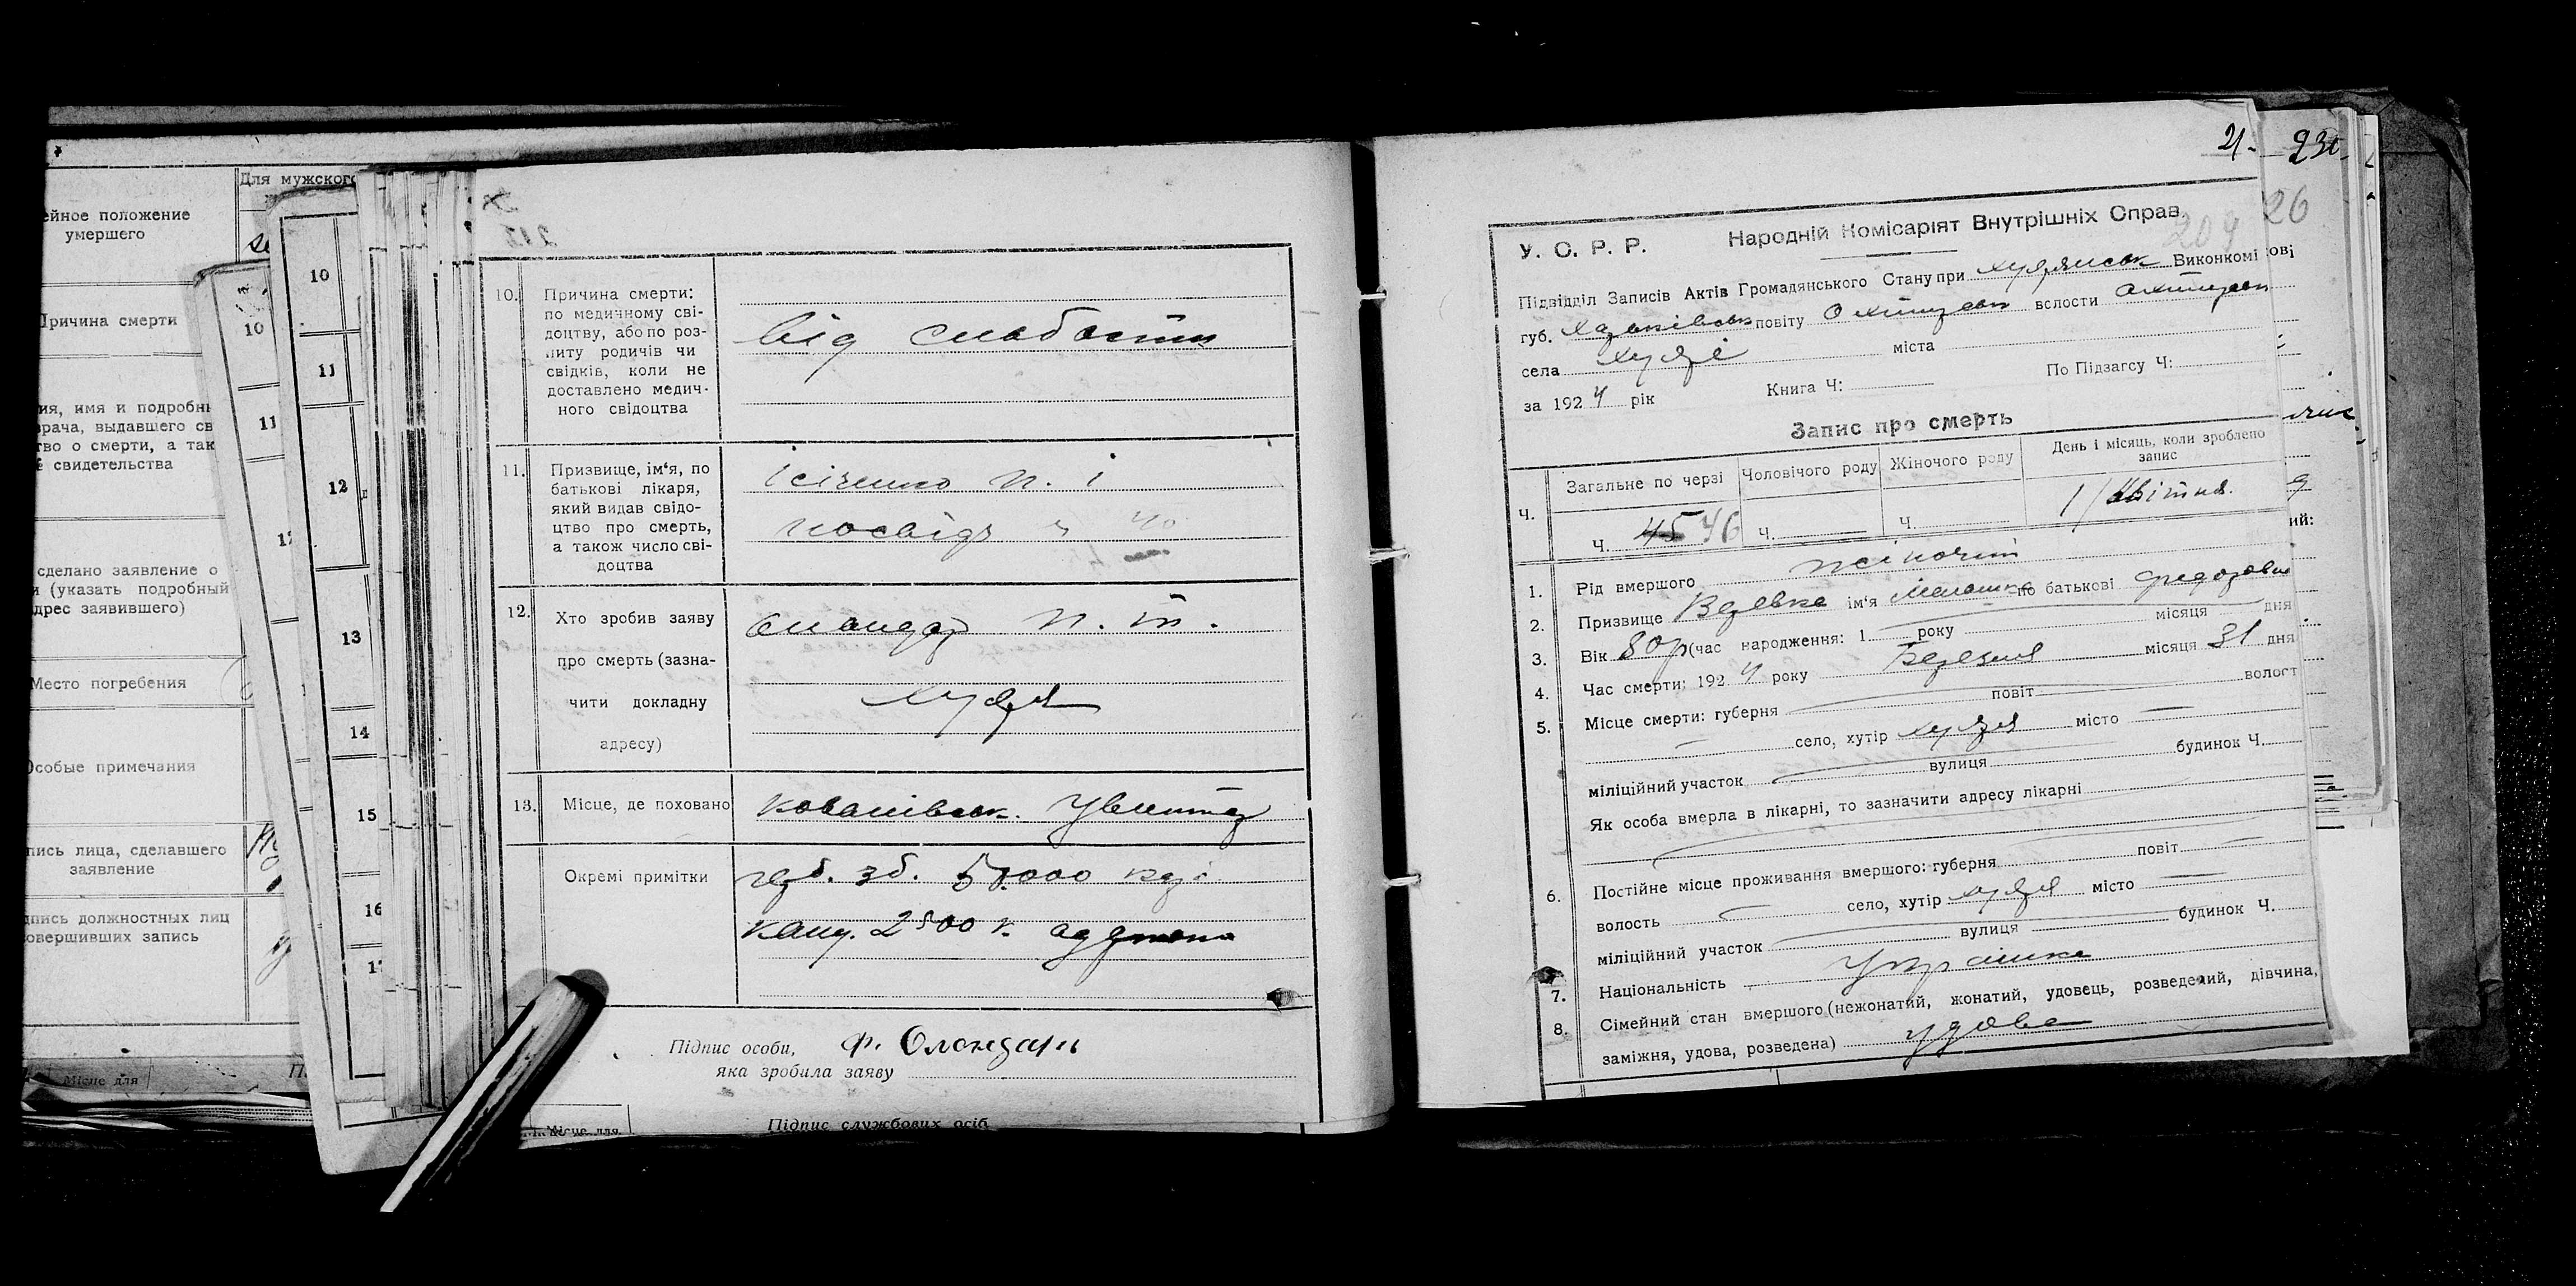 ейное положение
умершего
Для мужского
Причина смерти
ия, имя и подробн
врача, выдавшего св
тво о смерти, а так
свидетельства
сделано заявление о
и (указать подробный
дрес заявившего)
Место погребения
Особые примечания
пись лица, сделавшего
заявление
дпись должностных лиц
совершивших запись
Місце для
10
11
10
11
12
13
14
15
16
10. Причина смерти:
по медичному сві-
доцтву, або по роз-
питу родичів чи
свідків, коли не
доставлено медич-
ного свідоцтва
від слабости
11. Призвище, ім'я, по
батькові лікаря,
який видав свідо-
цтво про смерть,
а також число сві-
доцтва
Ісіченко П. І
посвідч ч 40
12. Хто зробив заяву
про смерть (зазна-
чити докладну
адресу)
П. Т.
Хухря
13. Місце, де поховано
Окремі примітки
зб. 000
канц. 2500 к.
Підпис особи, Ф. Олондарь
яка зробила заяву
Місце для
Підпис службових осіб
21.
230.
26
209
У. С. Р. Р. Народній Комісаріят Внутрішніх Справ.
Підвідділ Записів Актів Громадянського Стану при Хухрянськ Виконкомі
ові
губ. Харьківськ повіту Охтирськ волости Охтирськ
села Хухрі міста
за 1924 рік Книга Ч: По Підзагсу Ч:
Запис про смерть
Ч. Загальне по черзі Чоловічого роду Жіночого роду День і місяць, коли зроблено
запис
Ч. 45 46 Ч. Ч. 1/ Квітня.
ий:
1. Рід вмершого жіночий
2. Призвище ім'я Меланка по батькові Федоровна
3. Вік 80 р (час народження: 1 року місяця дня
4. Час смерти: 1924 року Березня місяця 31 дня
5. Місце смерти: губерня повіт волост
село, хутір Хухря місто
міліційний участок вулиця будинок Ч.
Як особа вмерла в лікарні, то зазначити адресу лікарні
6. Постійне місце проживання вмершого: губерня повіт
волость село, хутір Хухря місто
міліційний участок вулиця будинок Ч.
7. Національність Українка
8. Сімейний стан вмершого (нежонатий, жонатий, удовець, розведений, дівчина,
заміжня, удова, розведена) удова